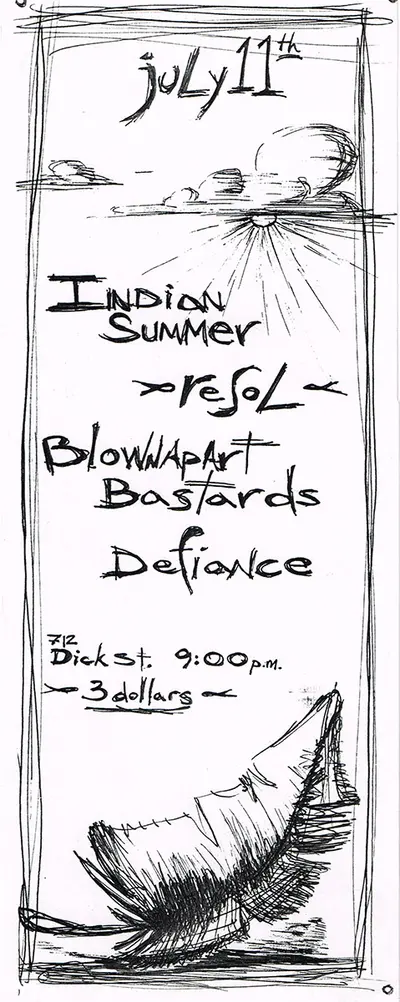 july 11th
Indian
Summer
resol
BlownApart
Bastards
Defiance
712
Dick St. 9:00 p.m.
3 dollars